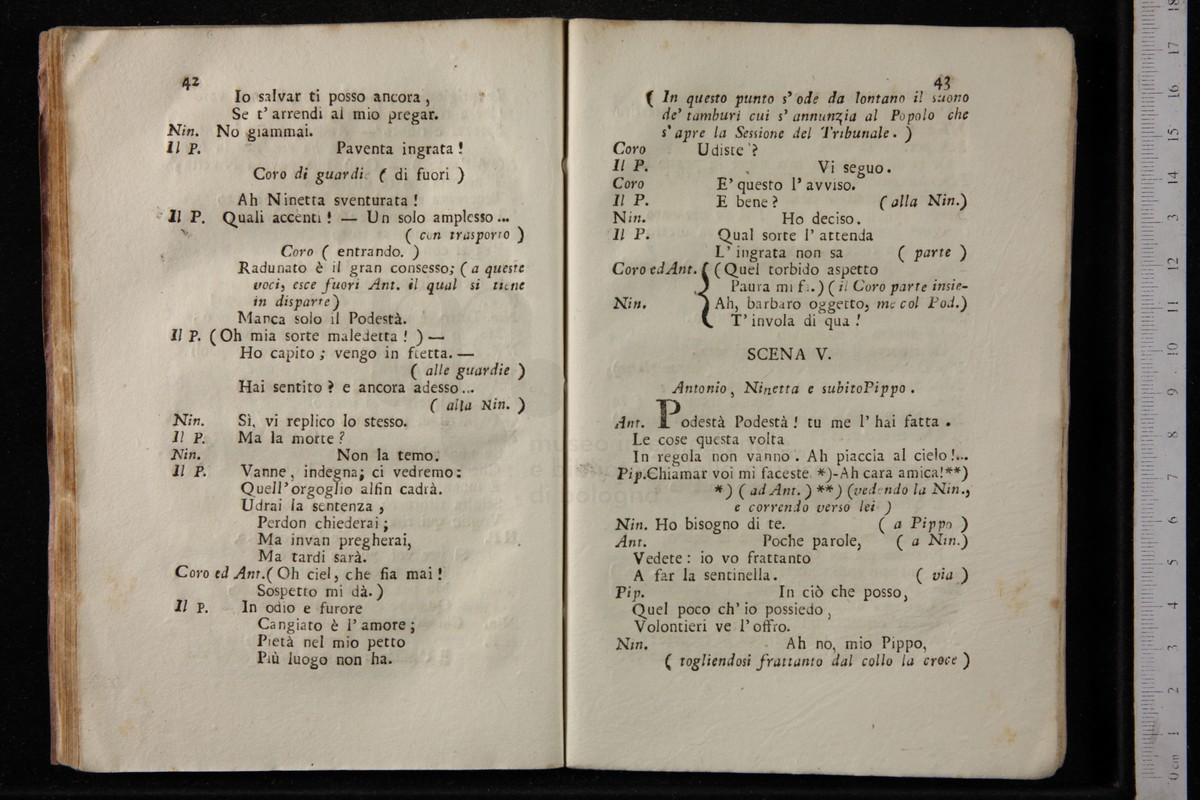 42
Io salvar ti posso ancora,
Se t' arrendi al mio pregar.
Nin. No giammai.
Il P. Paventa ingrata!
Coro di guardie ( di fuori )
Ah Ninetta sventurata!
Il P. Quali accenti! — Un solo amplesso...
( con trasporto )
Coro ( entrando. )
Radunato è il gran consesso; ( a queste
voci, esce fuori Ant. il qual si tiene
in disparte )
Manca solo il Podestà.
Il P. (Oh mia sorte maledetta! ) —
Ho capito; vengo in fretta. —
( alle guardie )
Hai sentito? e ancora adesso...
( alla Nin. )
Nin. Sì, vi replico lo stesso.
Il P. Ma la morte?
Nin. Non la temo.
Il P. Vanne, indegna; ci vedremo:
Quell' orgoglio alfin cadrà.
Udrai la sentenza,
Perdon chiederai;
Ma invan pregherai,
Ma tardi sarà.
Coro ed Ant. ( Oh ciel, che fia mai!
Sospetto mi dà. )
Il P. In odio e furore
Cangiato è l' amore;
Pietà nel mio petto
Più luogo non ha.
43
( In questo punto s' ode da lontano il suono
de' tamburi cui s' annunzia al Popolo che
s' apre la Sessione del Tribunale. )
Coro Udiste?
Il P. Vi seguo.
Coro E' questo l' avviso.
Il P. E bene? (alla Nin.)
Nin. Ho deciso.
Il P. Qual sorte l' attenda
L' ingrata non sa ( parte )
Coro ed Ant. { (Quel torbido aspetto
Paura mi fa.) ( il Coro parte insie-
Nin. Ah, barbaro oggetto, me col Pod.)
T' invola di qua!
SCENA V.
Antonio, Ninetta e subito Pippo.
Ant. Podestà Podestà! tu me l' hai fatta.
Le cose questa volta
In regola non vanno. Ah piaccia al cielo!...
Pip. Chiamar voi mi faceste. *)-Ah cara amica!**)
*) ( ad Ant. ) **) (vedendo la Nin.,
e correndo verso lei )
Nin. Ho bisogno di te. ( a Pippo )
Ant. Poche parole, ( a Nin.)
Vedete: io vo frattanto
A far la sentinella. ( via )
Pip. In ciò che posso,
Quel poco ch' io possiedo,
Volontieri ve l' offro.
Nin. Ah no, mio Pippo,
( togliendosi frattanto dal collo la croce )